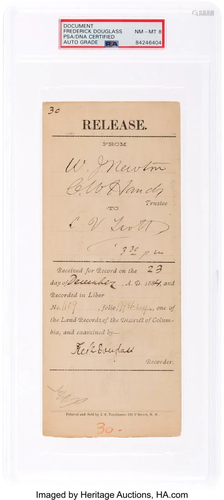 DOCUMENT
FREDERICK DOUGLASS NM - MT 8
PSA/DNA CERTIFIED
AUTO GRADE PSA 84246404
30
RELEASE.
FROM
W. J. Newton
C. W. Handy
Trustee
TO
C V Trott
3 30 p m
Received for Record on the 23
day of December A.D. 1884, and
Recorded in Liber
No. folio one of
the Land Records of the District of Colum-
bia, and examined by
Fredk Douglass
Recorder.
30-
Imaged by Heritage Auctions, HA.com